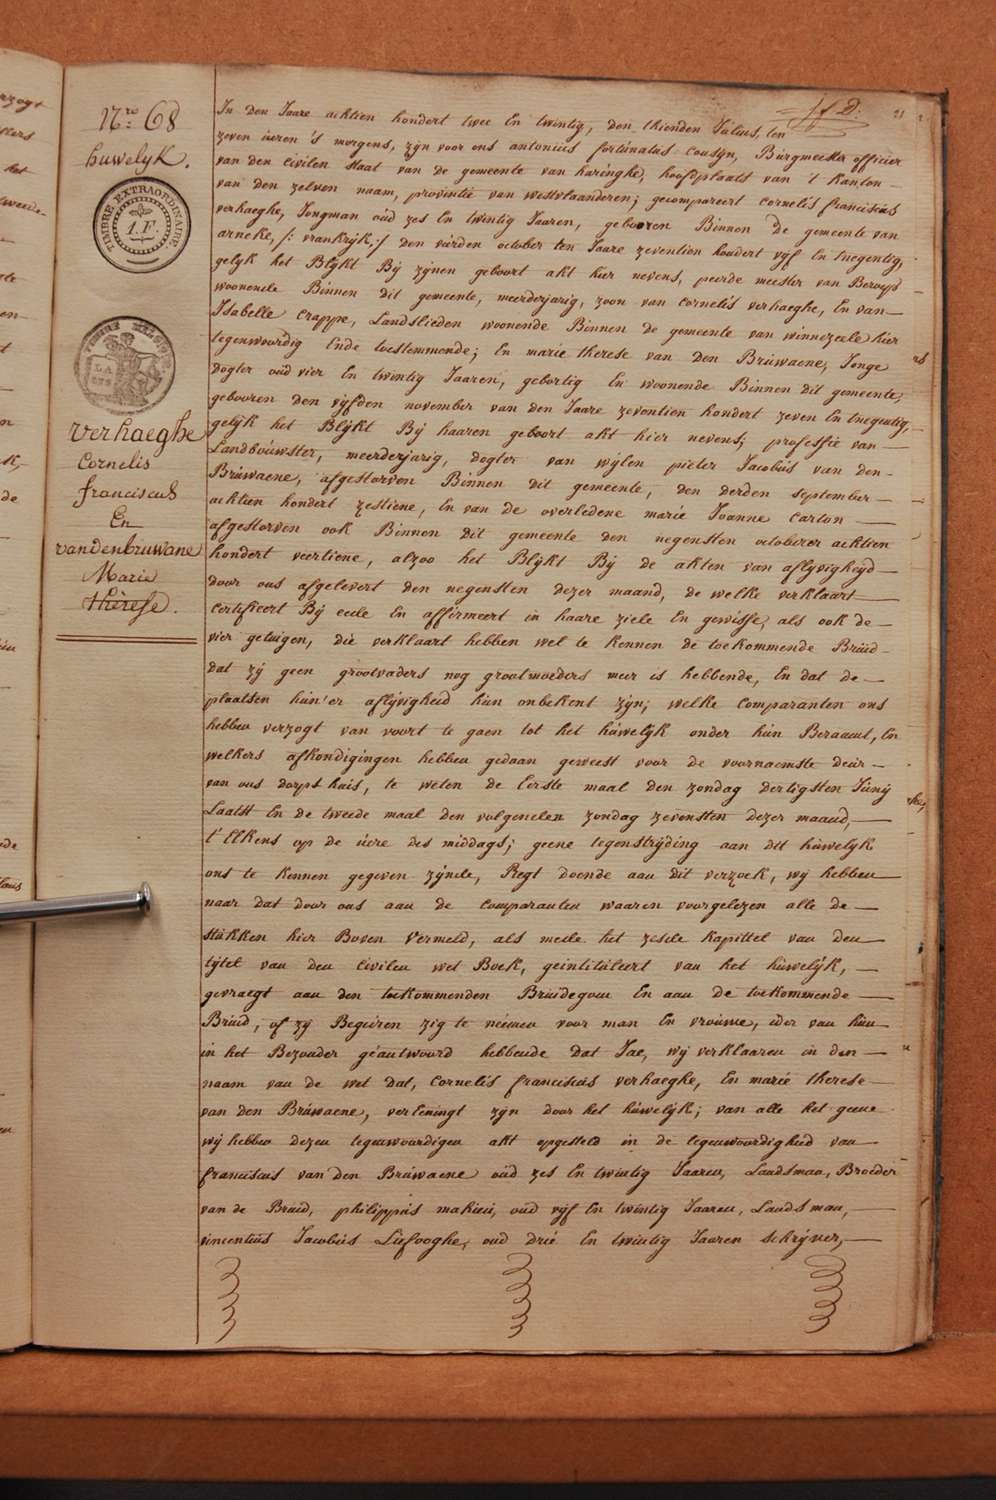 Nro 68
huwelyk.
TIMBRE EXTRAORDINAIRE
1.F.
verhaeghe
Cornelis
franciscus
En
vandenbruwane
Marie
thérése.
21
In den Jaare achtien hondert twee En twintig, den thienden Julius, ten
zeven uuren 's morgens, zyn voor ons antonius fortunatus Cousyn, Burgmeester officier
van den Civilen Staat van de gemeente van haringhe, hoofdplaats van 't Kanton
van den zelven naam, provintie van westvlaanderen; gecompareert Cornelis franciscus
verhaeghe, Jongman oud zes En twintig Jaaren, gebooren Binnen de gemeente van
arneke, /: vrankryk,:/ den vierden october ten Jaare zeventien hondert vyf En tnegentig,
gelyk het Blykt By zynen geboort akt hier nevens, peerde meester van Beroep
woonende Binnen dit gemeente, meerderjarig, zoon van Cornelis verhaeghe, En van
Isabelle Crappe, Landslieden woonende Binnen de gemeente van winnezeele hier
tegenwoordig Ende toestemmende; En marie therese van den Bruwaene, Jonge
dogter oud vier En twintig Jaaren, gebortig En woonende Binnen dit gemeente,
gebooren den vyfden november van den Jaare zeventien hondert zeven En tnegentig,
gelyk het Blykt By haaren geboort akt hier nevens; professie van
Landbouwster, meerderjarig, dogter van wylen pieter Jacobus van den
Bruwaene, afgestorven Binnen dit gemeente, den derden september
achtien hondert zestiene, En van de overledene marie Joanne Carton
afgestorven ook Binnen dit gemeente den negensten octoberer achtien
hondert veertiene, alzoo het Blykt By de akten van aflyvigheyd
door ons afgelevert den negensten dezer maand, de welke verklaart
certificeert By eede En affirmeert in haare ziele En gewisse, als ook de
vier getuigen, die verklaart hebben wel te kennen de toekommende Bruid
dat zy geen grootvaders nog grootmoeders meer is hebbende, En dat de
plaatsen hun'er aflyvigheid hun onbekent zyn; welke Comparanten ons
hebben verzogt van voort te gaen tot het huwelyk onder hun Beraamt, En
welkers afkondigingen hebben gedaan geweest voor de voornaemste deur
van ons dorps huis, te weten de Eerste maal den zondag dertigsten Juny
Laatst En de tweede maal den volgenden zondag zevensten dezer maand,
t'Elkens op de uere des middags; geene tegenstryding aan dit huwelyk
ons te kennen gegeven zynde, Regt doende aan dit verzoek, wy hebben
naar dat door ons aan de Comparanten waaren voorgelezen alle de
stukken hier Boven vermeld, als mede het zesde kapittel van den
tytel van den Civilen wet Boek, geintituleert van het huwelyk,
gevraegt aan den toekommenden Bruidegom En aan de toekommende
Bruid, of zy Begeiren zig te neemen voor man En vrouwe, ider van hun
in het Bezonder geantwoord hebbende dat Jae, wy verklaaren in den
naam van de wet dat, Cornelis franciscus verhaeghe, En marie therese
van den Bruwaene, vereenigt zyn door het huwelyk; van alle het geene
wy hebben dezen tegenwoordigen akt opgesteld in de tegenwoordigheid van
franciscus van den Bruwaene oud zes En twintig Jaaren, Landsman, Broeder
van de Bruid, philippus makieu, oud vyf En twintig Jaaren, Landsman,
vincentius Jacobus Liefooghe, oud drie En twintig Jaaren schryver,